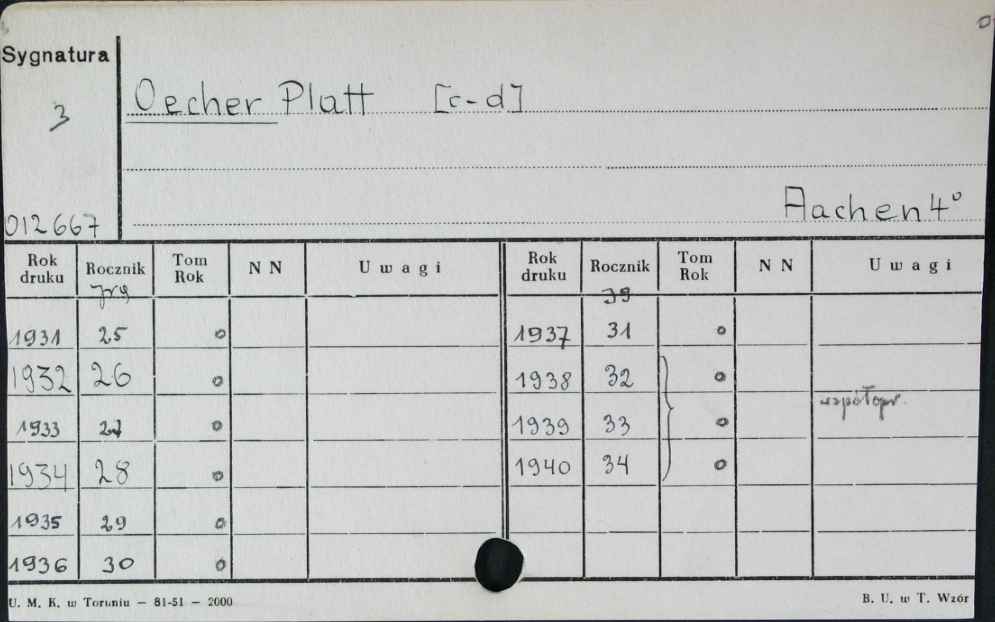 Sygnatura
3
012667
Oecher Platt [c-d]
Aachen 4°
Rok druku Rocznik Tom Rok N N Uwagi Rok druku Rocznik Tom Rok N N Uwagi
Jrg 39
1931 25 o 1937 31 o
1932 26 o 1938 32 o
współopr.
1933 27 o 1939 33 o
1934 28 o 1940 34 o
1935 29 o
1936 30 o
U. M. K. w Toruniu — 81-51 — 2000 B. U. w T. Wzór